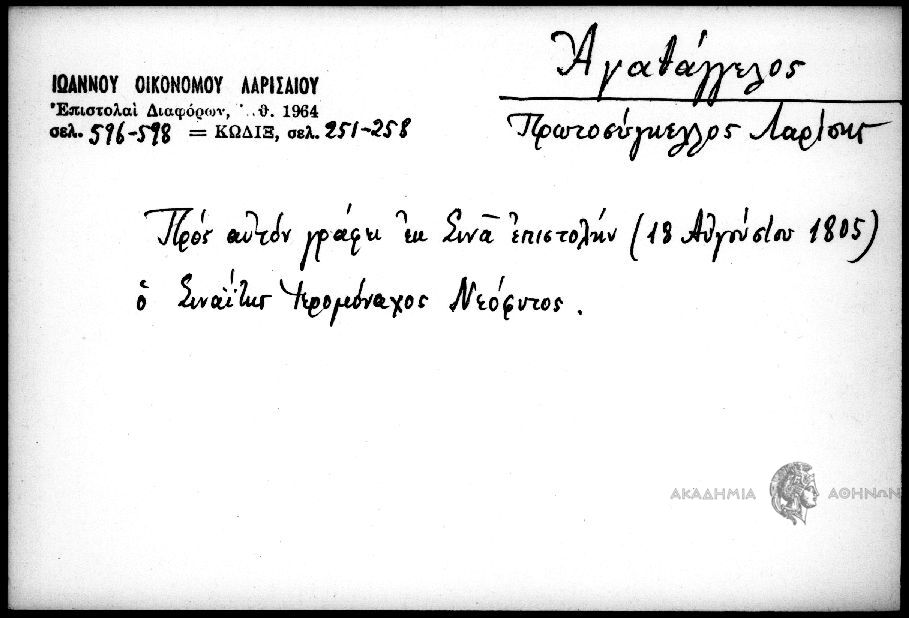 Ἀγαθάγγελος
Πρωτοσύγκελλος Λαρίσης
ΙΩΑΝΝΟΥ ΟΙΚΟΝΟΜΟΥ ΛΑΡΙΣΑΙΟΥ
Ἐπιστολαὶ Διαφόρων, θ. 1964
σελ. 596-598 = ΚΩΔΙΞ, σελ. 251-258
Πρός αὐτόν γράφει ἐκ Σινᾶ ἐπιστολήν (18 Αὐγούστου 1805)
ὁ Σιναΐτης Ἱερομόναχος Νεόφυτος.
ΑΚΑΔΗΜΙΑ ΑΘΗΝΩΝ